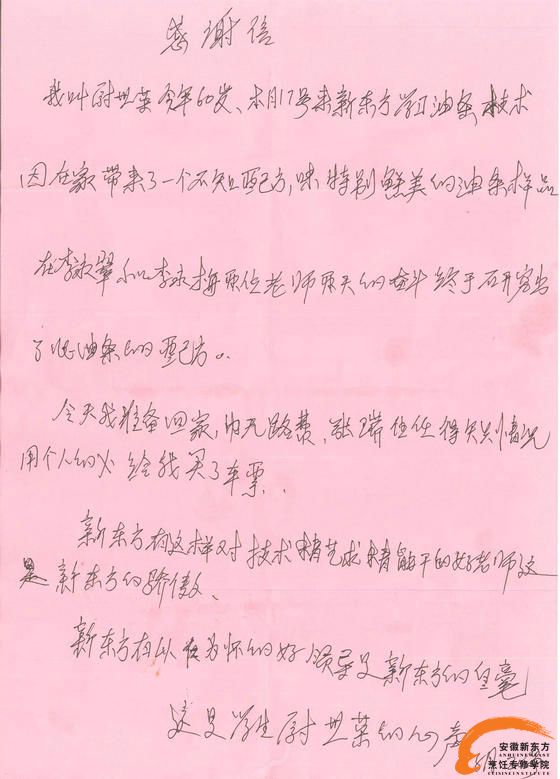 感谢信
我叫尉世菜今年60岁、本月17号来新东方学习油条技术
因在家带来了一个不知配方,味特别鲜美的油条样品
在李 和李永梅两位老师两天的奋斗终于研究出
了此油条的配方。
今天我准备回家,内无路费,张瑞主任得知情况
用个人的 给我买了车票、
新东方有这样对技术精艺求精能干的好老师这
是新东方的骄傲、
新东方有以 为怀的好领导是新东方的自豪
这是学生尉世菜的心声
安徽新东方
烹饪专修学院